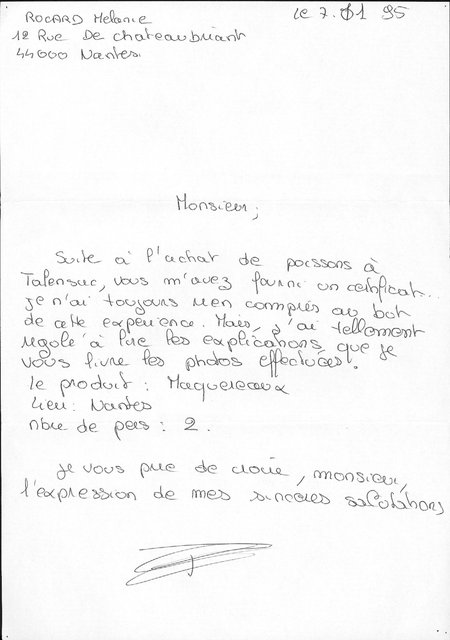 ROCARD Melanie
le 7. 01 95
12 Rue De chateaubriant
44000 Nantes.
Monsieur,
Suite à l'achat de poissons à
Talensac, vous m'avez fourni un certificat..
je n'ai toujours rien compris au but
de cette expérience. Mais, j'ai tellement
rigolé à lire les explications que je
vous livre les photos effectuées!
le produit : Maquereaux
Lieu: Nantes
nbre de pers : 2.
je vous prie de croire, monsieur,
l'expression de mes sincères salutations